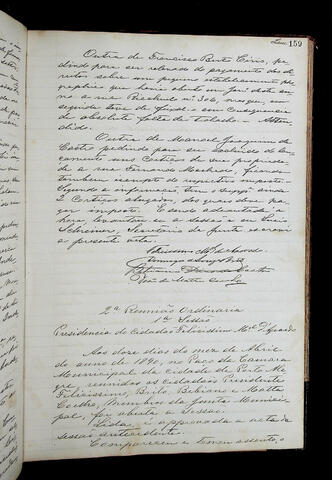 159
Outra de Francisco Pinto Ciris, pe-
dindo para ser relevado do pagamento dos di-
reitos sobre um pequeno estabelecimento de
que havia aberto em Junho deste an-
no a rua Riachuelo nº 306, mas que, em
seguida teve de fechal-o em consequencia
de absoluta falta de trabalho. Atten-
dido.
Outra de Manoel Joaquim de
Castro pedindo para ser excluido do lan-
çamento seus Cortiços de sua proprieda-
de a rua Fernando Machado, ficando
tambem isempto do respectivo imposto.
Segundo a informação, tem o supp.e ainda
2 Cortiços alugados, dos quaes deve pa-
gar imposto. E sendo adeantada a
hora levantou-se a sessão e eu
Schreiner, Secretario da Junta escrevi
a presente acta.
2ª Reunião Ordinaria
1ª Sessão
Presidencia do Cidadão Felicissimo M.el d'Azevedo
Aos doze dias do mez de Abril
do anno de 1890, no Paço da Camara
Municipal da Cidade de Porto Ale-
gre reunidos os Cidadãos Presidente
Felicissimo, Brito, Bibiano e Matta
Coelho, membros da Junta Munici-
pal, foi aberta a Sessão.
Lida, é approvada a acta da
sessão antecedente.
Compareceu e tomou assento, o